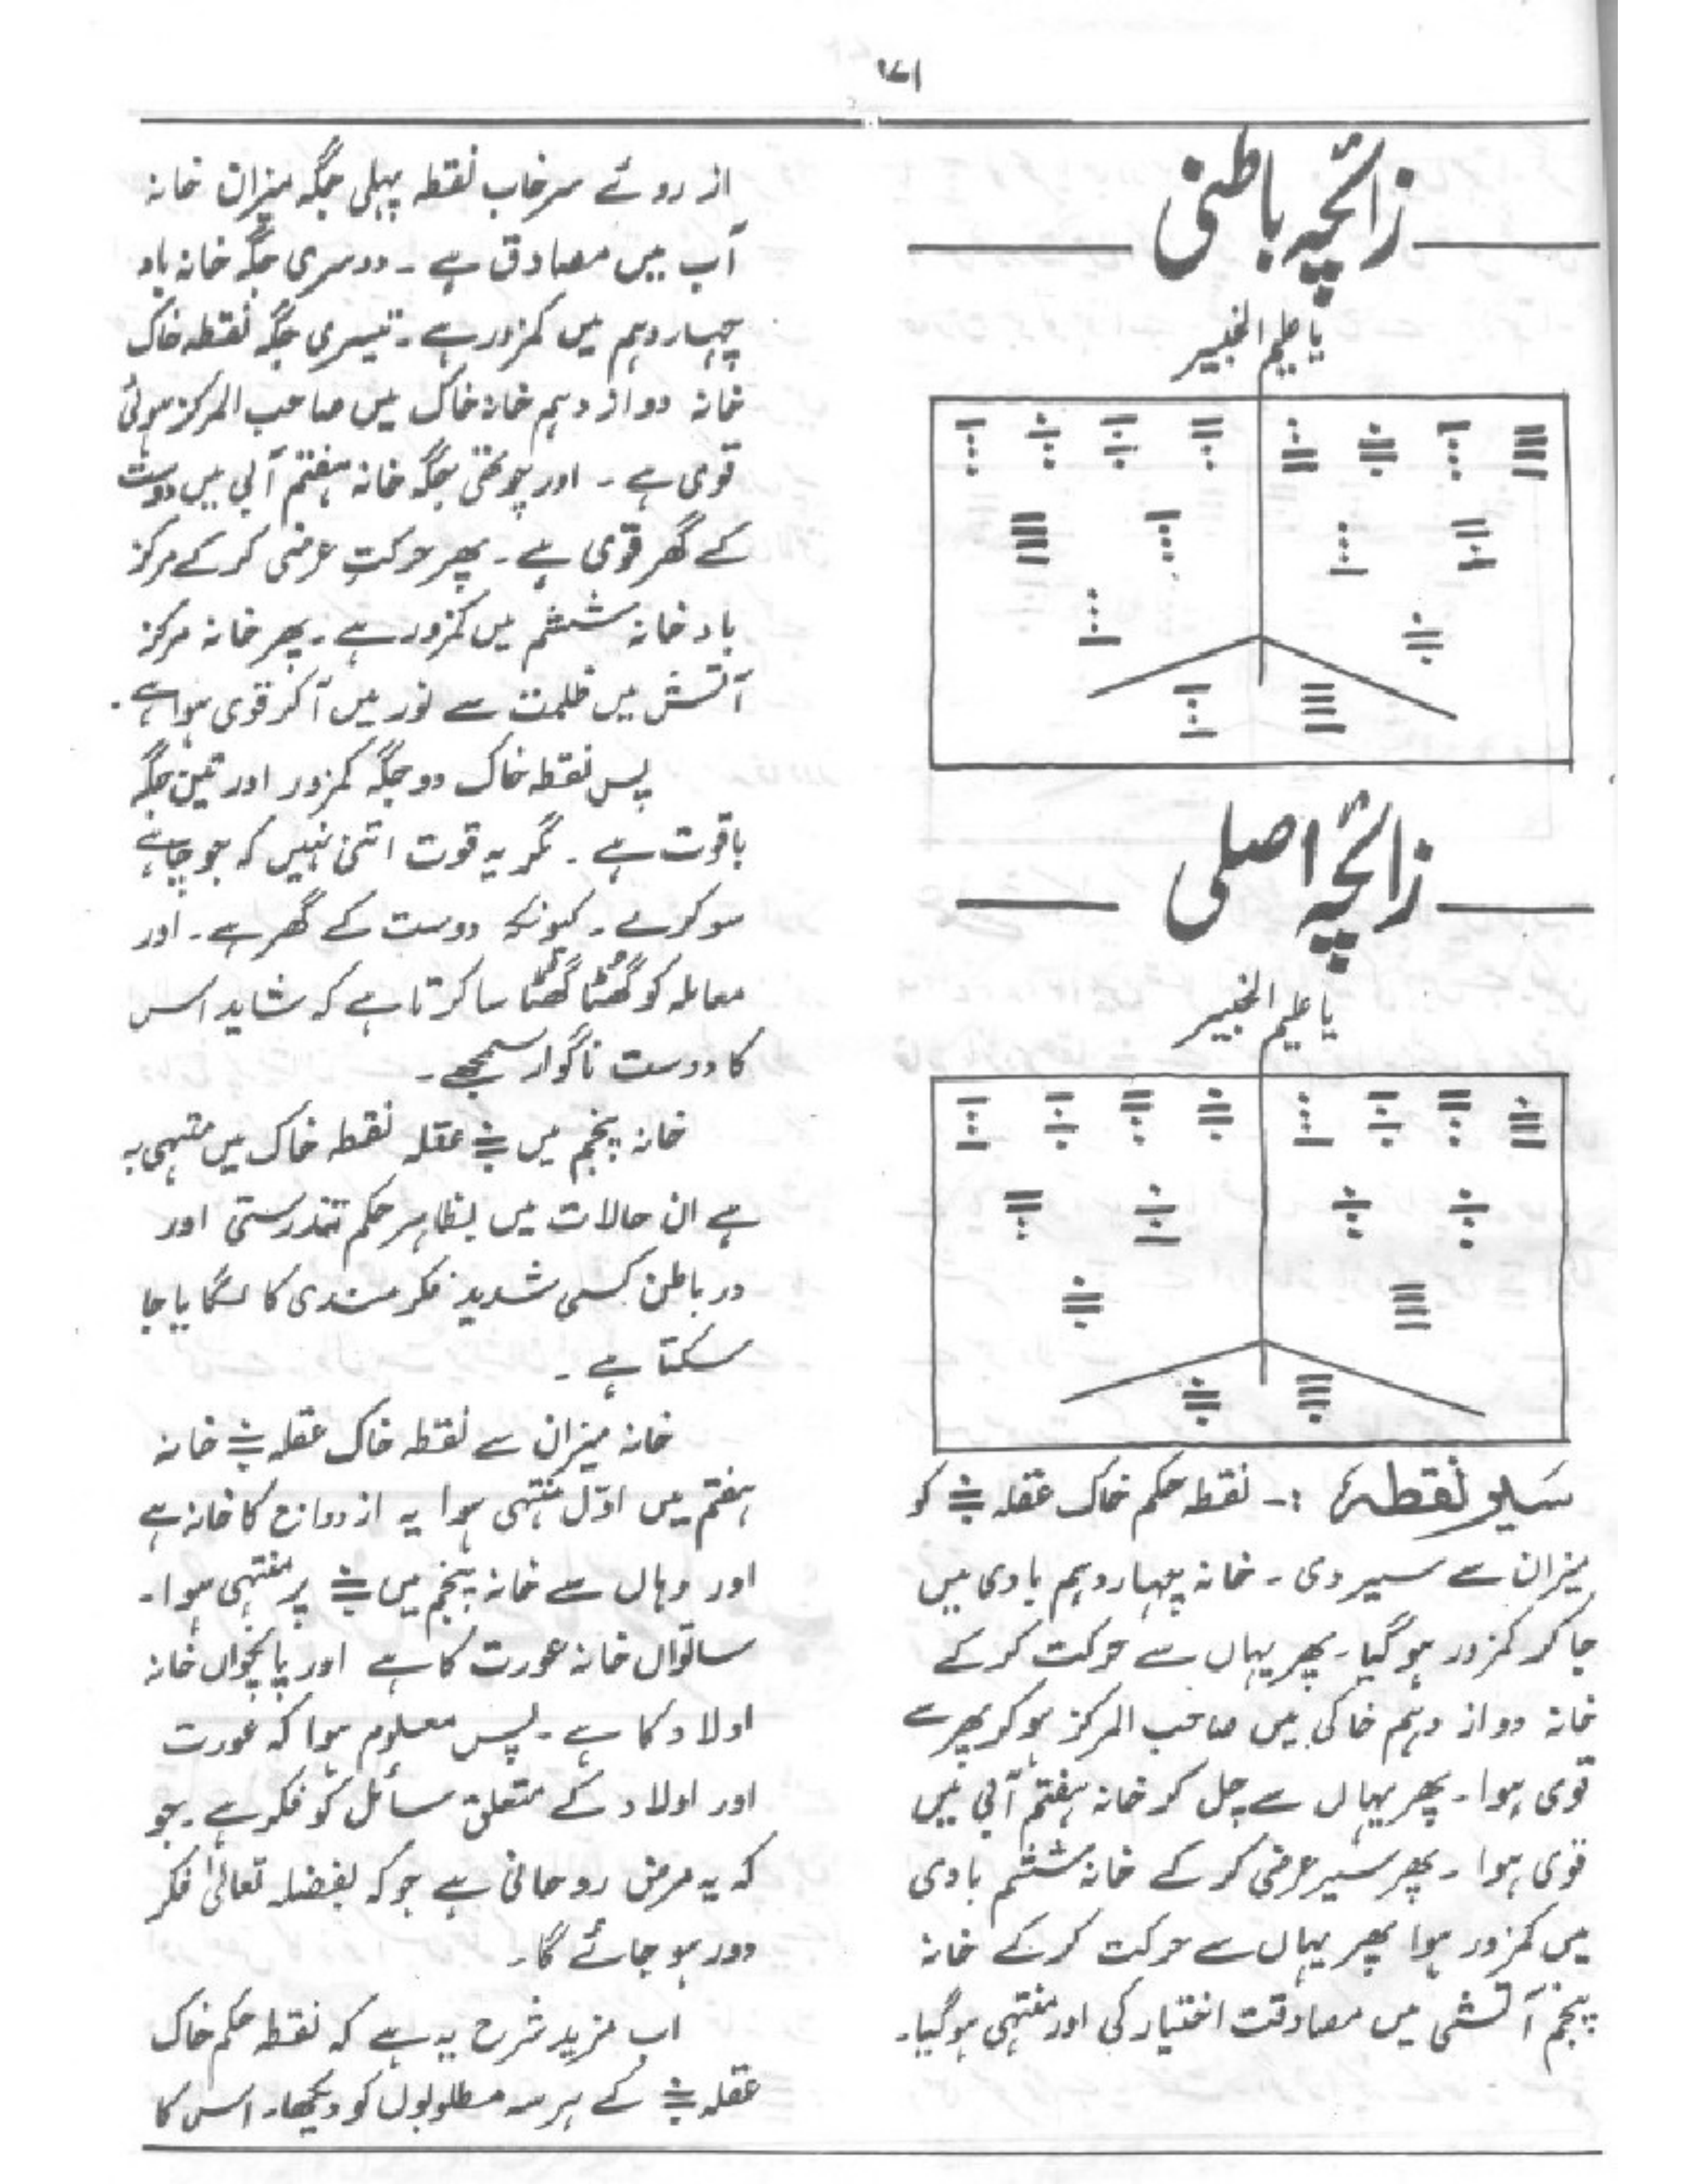 ۱۷۱
زائچہ باطنی
یا علیم الخبیر
زائچہ اصلی
یا علیم الخبیر
سیر نقطہ :- نقطہ حکم خاک عقلہ کو
میزان سے سیر دی ۔ خانہ چہاردہم بادی میں
جا کر کمزور ہو گیا ۔ پھر یہاں سے حرکت کر کے
خانہ دوازدہم خاکی میں صاحب المرکز ہو کر پھر سے
قوی ہوا ۔ پھر یہاں سے چل کر خانہ ہفتم آبی میں
قوی ہوا ۔ پھر سیر عرضی کر کے خانہ ششم بادی
میں کمزور ہوا پھر یہاں سے حرکت کر کے خانہ
پنجم آتشی میں مصادقت اختیار کی اور منتہی ہو گیا ۔
از روئے سرخاب نقطہ پہلی جگہ میزان خانہ
آب میں مصادق ہے ۔ دوسری جگہ خانہ باد
چہاردہم میں کمزور ہے ۔ تیسری جگہ نقطہ خاک
خانہ دوازدہم خانہ خاک میں صاحب المرکز ہوئی
قوی ہے ۔ اور چوتھی جگہ خانہ ہفتم آبی میں دوست
کے گھر قوی ہے ۔ پھر حرکت عرضی کر کے مرکز
باد خانہ ششم میں کمزور ہے ۔ پھر خانہ مرکز
آتش میں ظلمت سے نور میں آ کر قوی ہوا ہے ۔
پس نقطہ خاک دو جگہ کمزور اور تین جگہ
باقوت ہے ۔ مگر یہ قوت اتنی نہیں کہ جو چاہے
سو کرے ۔ کیونکہ دوست کے گھر ہے ۔ اور
معاملہ کو گھٹا گھٹا سا کرتا ہے کہ شاید اس
کا دوست ناگوار سمجھے ۔
خانہ پنجم میں عقلہ نقطہ خاک میں منتہی بہ
ہے ان حالات میں بظاہر حکم تندرستی اور
در باطن کسی شدید فکر مندی کا لگایا جا
سکتا ہے ۔
خانہ میزان سے نقطہ خاک عقلہ خانہ
ہفتم میں اوّل منتہی ہوا یہ ازدواج کا خانہ ہے
اور وہاں سے خانہ پنجم میں پر منتہی ہوا ۔
ساتواں خانہ عورت کا ہے اور پانچواں خانہ
اولاد کا ہے ۔ پس معلوم ہوا کہ عورت
اور اولاد کے متعلق مسائل کو فکر ہے ۔ جو
کہ یہ مرض روحانی ہے جو کہ بفضلہ تعالیٰ فکر
دور ہو جائے گا ۔
اب مزید شرح یہ ہے کہ نقطہ حکم خاک
عقلہ کے ہر سہ مطلوبوں کو دیکھا ۔ اس کا